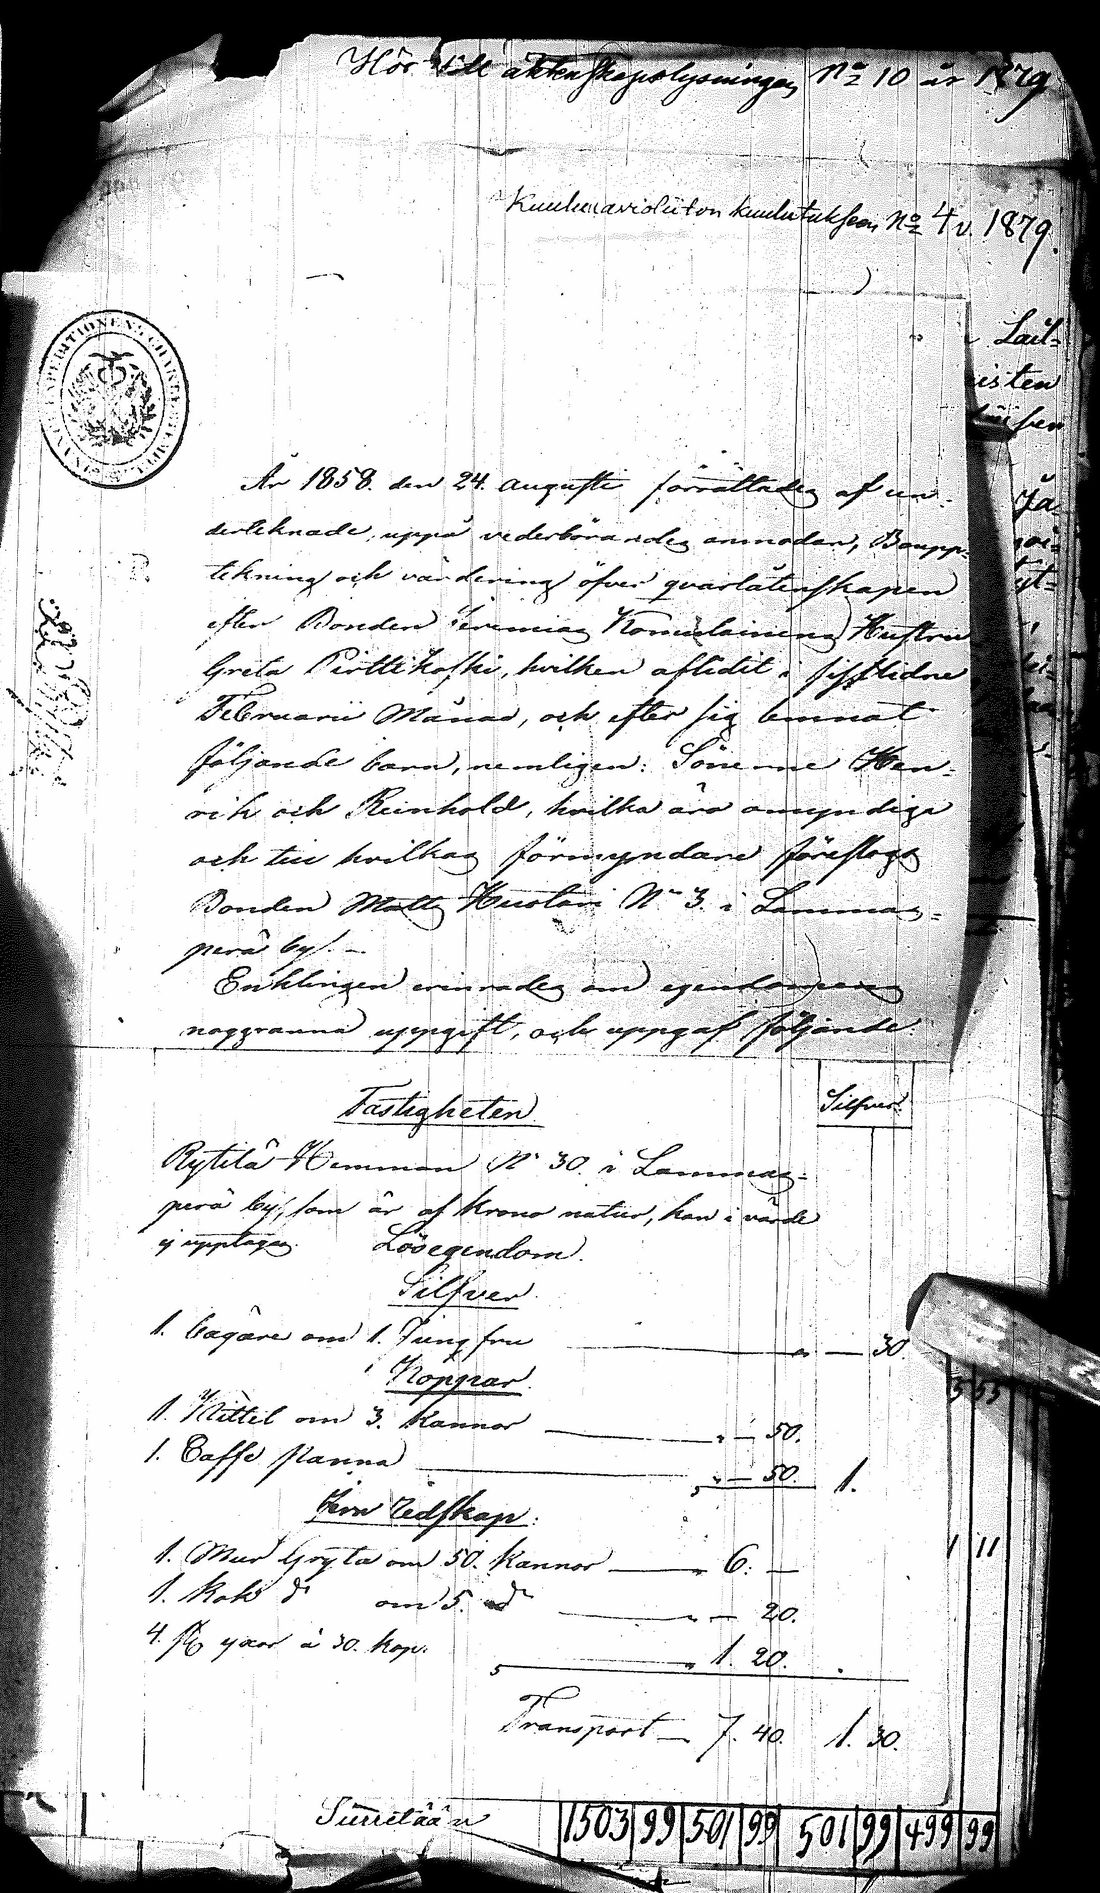 Hör till äktenskapslysningen No 10 år 1879
Kuuluu avioliiton kuulutukseen No 4 v. 1879.
FINANCE EXPEDITIONENS CHARTÆ STEMPEL
Lail=
isten
År 1858. den 24. Augusti förrättades af un-
dertecknade, uppå vederbörandes anmodan, Boupp-
tekning och värdering öfver qvarlåtenskapen
efter Bonden Jeremias Komulainens Hustru
Greta Pirttikoski, hvilken aflidit i sistlidne
Februarii Månad, och efter sig lemnat
följande barn, nemligen: Sönerne Hen-
rik och Reinhold, hvilka äro omyndiga
och till hvilkas förmyndare föreslogs
Bonden Matts Huotari No 3. i Lammas-
perä by. —
Enklingen erinrades om egendomens
noggranna uppgift, och uppgaf följande:
Fastigheten Silfver
Rytilä Hemman No 30. i Lammas-
perä by, som är af krono natur, kan i värde
ej upptagas. Lösegendom.
Silfver
1. bägare om 1. Jungfru " — 30.
Koppar
1. Kittel om 3. kannor " — 50.
1. Caffe panna " — 50. 1.
Jern redskap.
1. Mur Gryta om 50. kannor 6. —
1. Kok do om 5. do " — 20.
4. st yxor à 30. kop. " 1. 20.
Transport — 7. 40. 1. 30.
5 55
1 11
Siirretään 1503 99 501 99 501 99 499 99